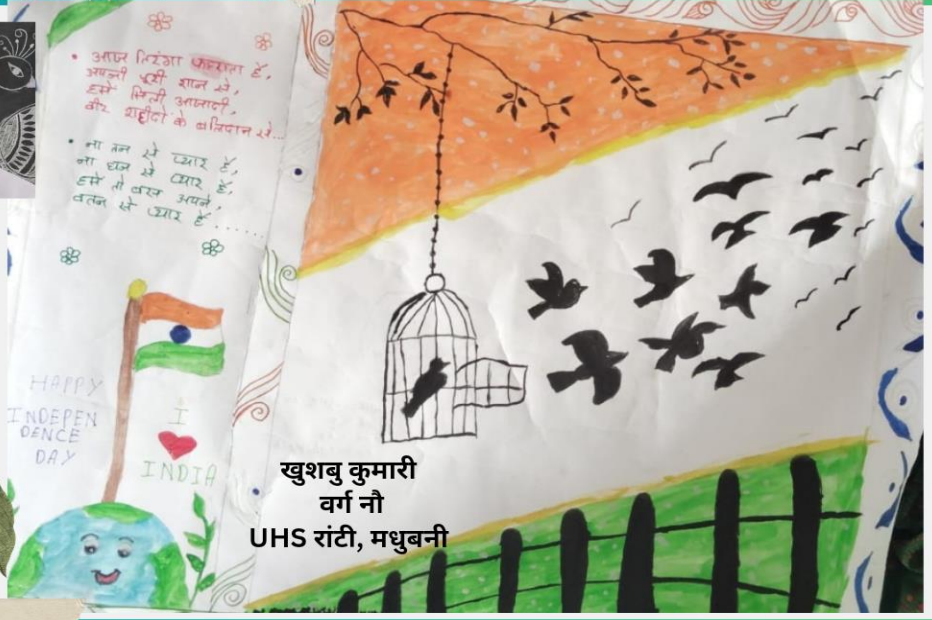 • आज तिरंगा फहराता है,
अपनी पूरी शान से,
हमें मिली आजादी,
वीर शहीदों के बलिदान से...
• ना तन से प्यार है,
ना धन से प्यार है,
हमें तो बस अपने,
वतन से प्यार है.......
HAPPY
INDEPEN
DENCE
DAY
I
INDIA
खुशबु कुमारी
वर्ग नौ
UHS रांटी, मधुबनी